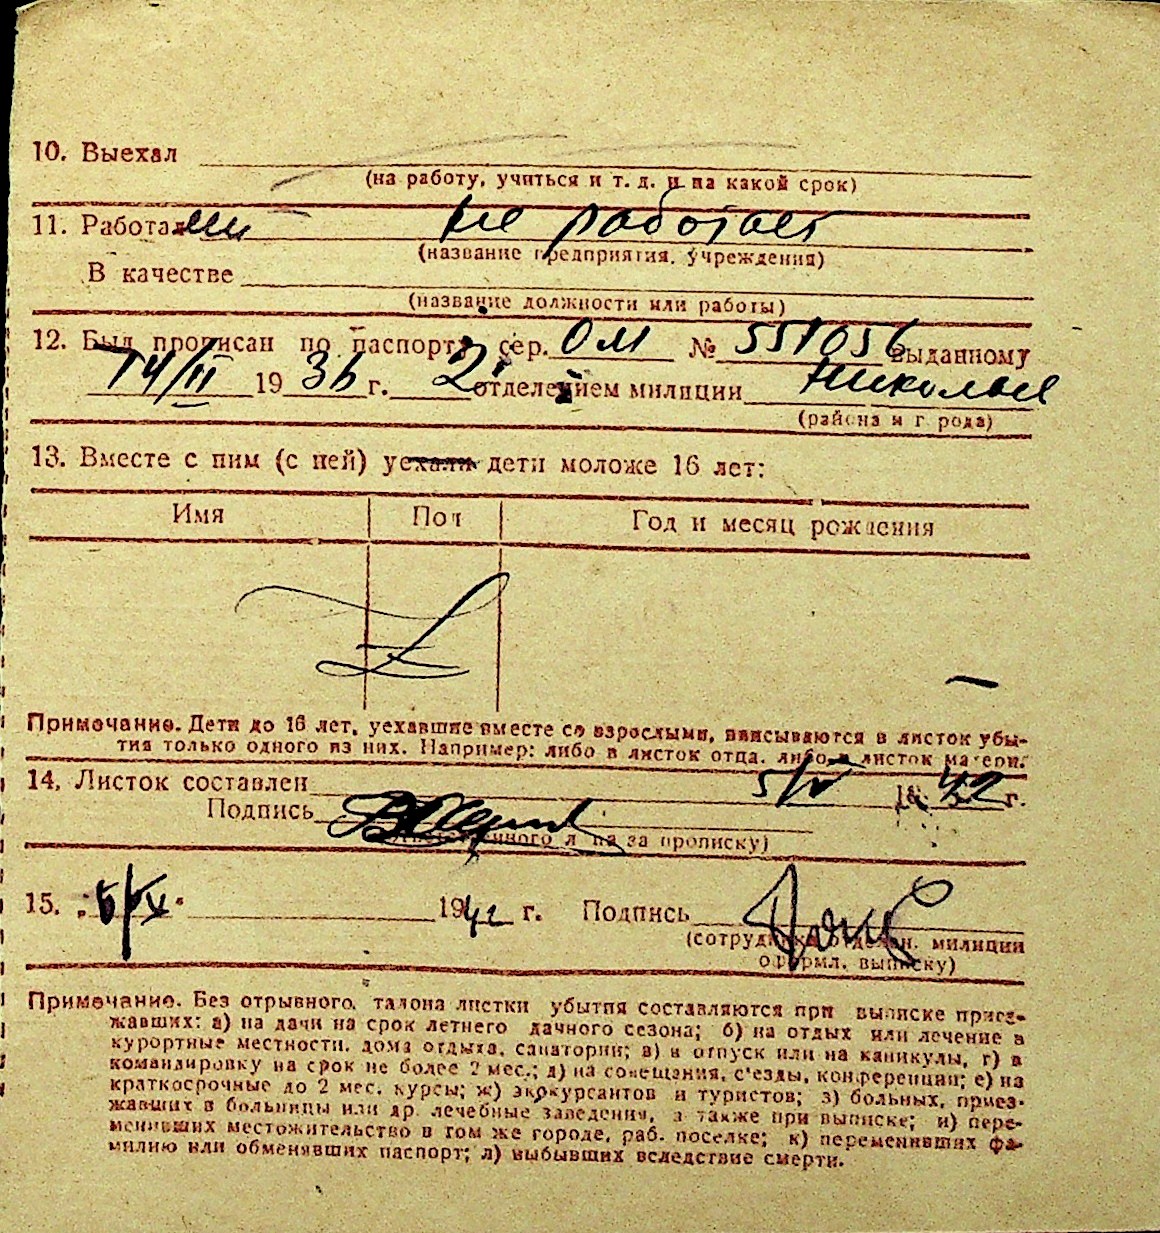 10. Выехал
(на работу, учиться и т. д. и на какой срок)
11. Работал Не работает
(название предприятия, учреждения)
В качестве
(название должности или работы)
12. Был прописан по паспорту сер. ОМ № 551056 выданному
14/II 1936 г. 2 отделением милиции
(района и города)
13. Вместе с ним (с ней) уехали дети моложе 16 лет:
Имя Пол Год и месяц рождения
Примечание. Дети до 16 лет, уехавшие вместе со взрослыми, вписываются в листок убы-
тия только одного из них. Например: либо в листок отца, либо в листок матери.
14. Листок составлен 5/V 1942 г.
Подпись
за прописку)
15. 1942 г. Подпись
(сотрудника отделен. милиции
оформл. выписку)
Примечание. Без отрывного талона листки убытия составляются при выписке приез-
жавших: а) на дачи на срок летнего дачного сезона; б) на отдых или лечение в
курортные местности, дома отдыха, санатории; в) в отпуск или на каникулы, г) в
командировку на срок не более 2 мес.; д) на совещания, с'езды, конференции; е) на
краткосрочные до 2 мес. курсы; ж) экскурсантов и туристов; з) больных, приез-
жавших в больницы или др. лечебные заведения, а также при выписке; и) пере-
менивших местожительство в том же городе, раб. поселке; к) переменивших фа-
милию или обменявших паспорт; л) выбывших вследствие смерти.